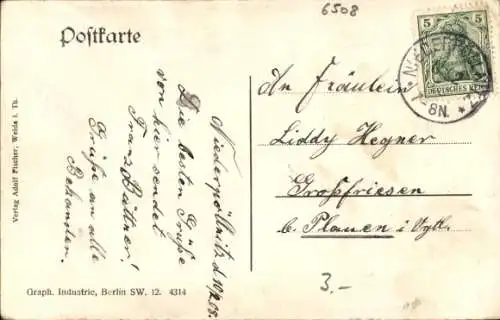 6508
Postkarte
5
DEUTSCHES REICH
8N.
An Fräulein
Liddy Hegner
Großfriesen
b. Plauen i. Vgtl.
3.-
Niederpöllnitz d.
Die besten Grüße
von hier sendet
Franz Büttner!
Grüße an alle
Bekannten.
Verlag Adolf Fischer, Weida i. Th.
Graph. Industrie, Berlin SW. 12. 4314